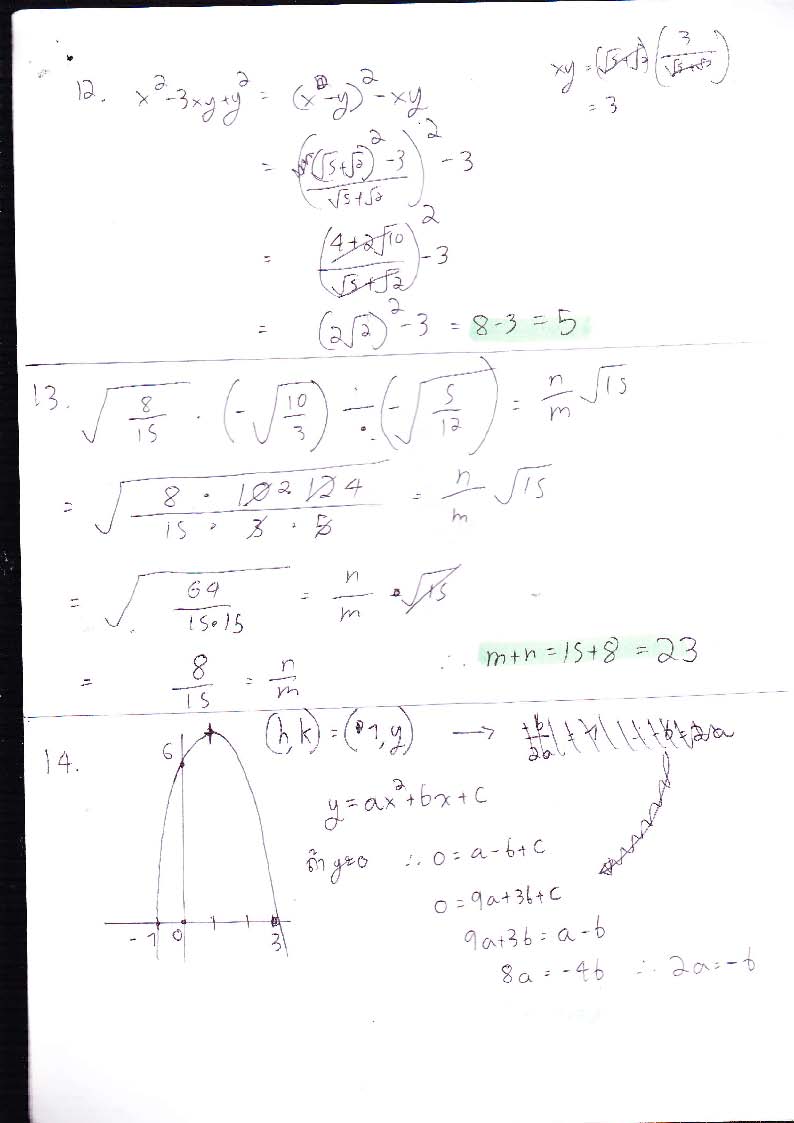 12. x² - 3xy + y² = (x - y)² - xy
xy = (√5+√2)(3/(√5+√2))
= 3
= (((√5+√2)² - 3)/(√5+√2))² - 3
= ((4+2√10)/(√5+√2))² - 3
= (2√2)² - 3 = 8-3 = 5
13. √(8/15) · (-√(10/3)) ÷ (-√(5/12)) = n/m √15
= √((8 · 10 2 12 4)/(15 · 3 · 5)) = n/m √15
= √(64/(15·15)) = n/m · √15
= 8/15 = n/m ∴ m+n = 15+8 = 23
14. (h,k) = (1,y) →
6
-1 0 3
y = ax² + bx + c
ถ้า y=0 ∴ 0 = a-b+c
0 = 9a+3b+c
9a+3b = a-b
8a = -4b ∴ 2a = -b